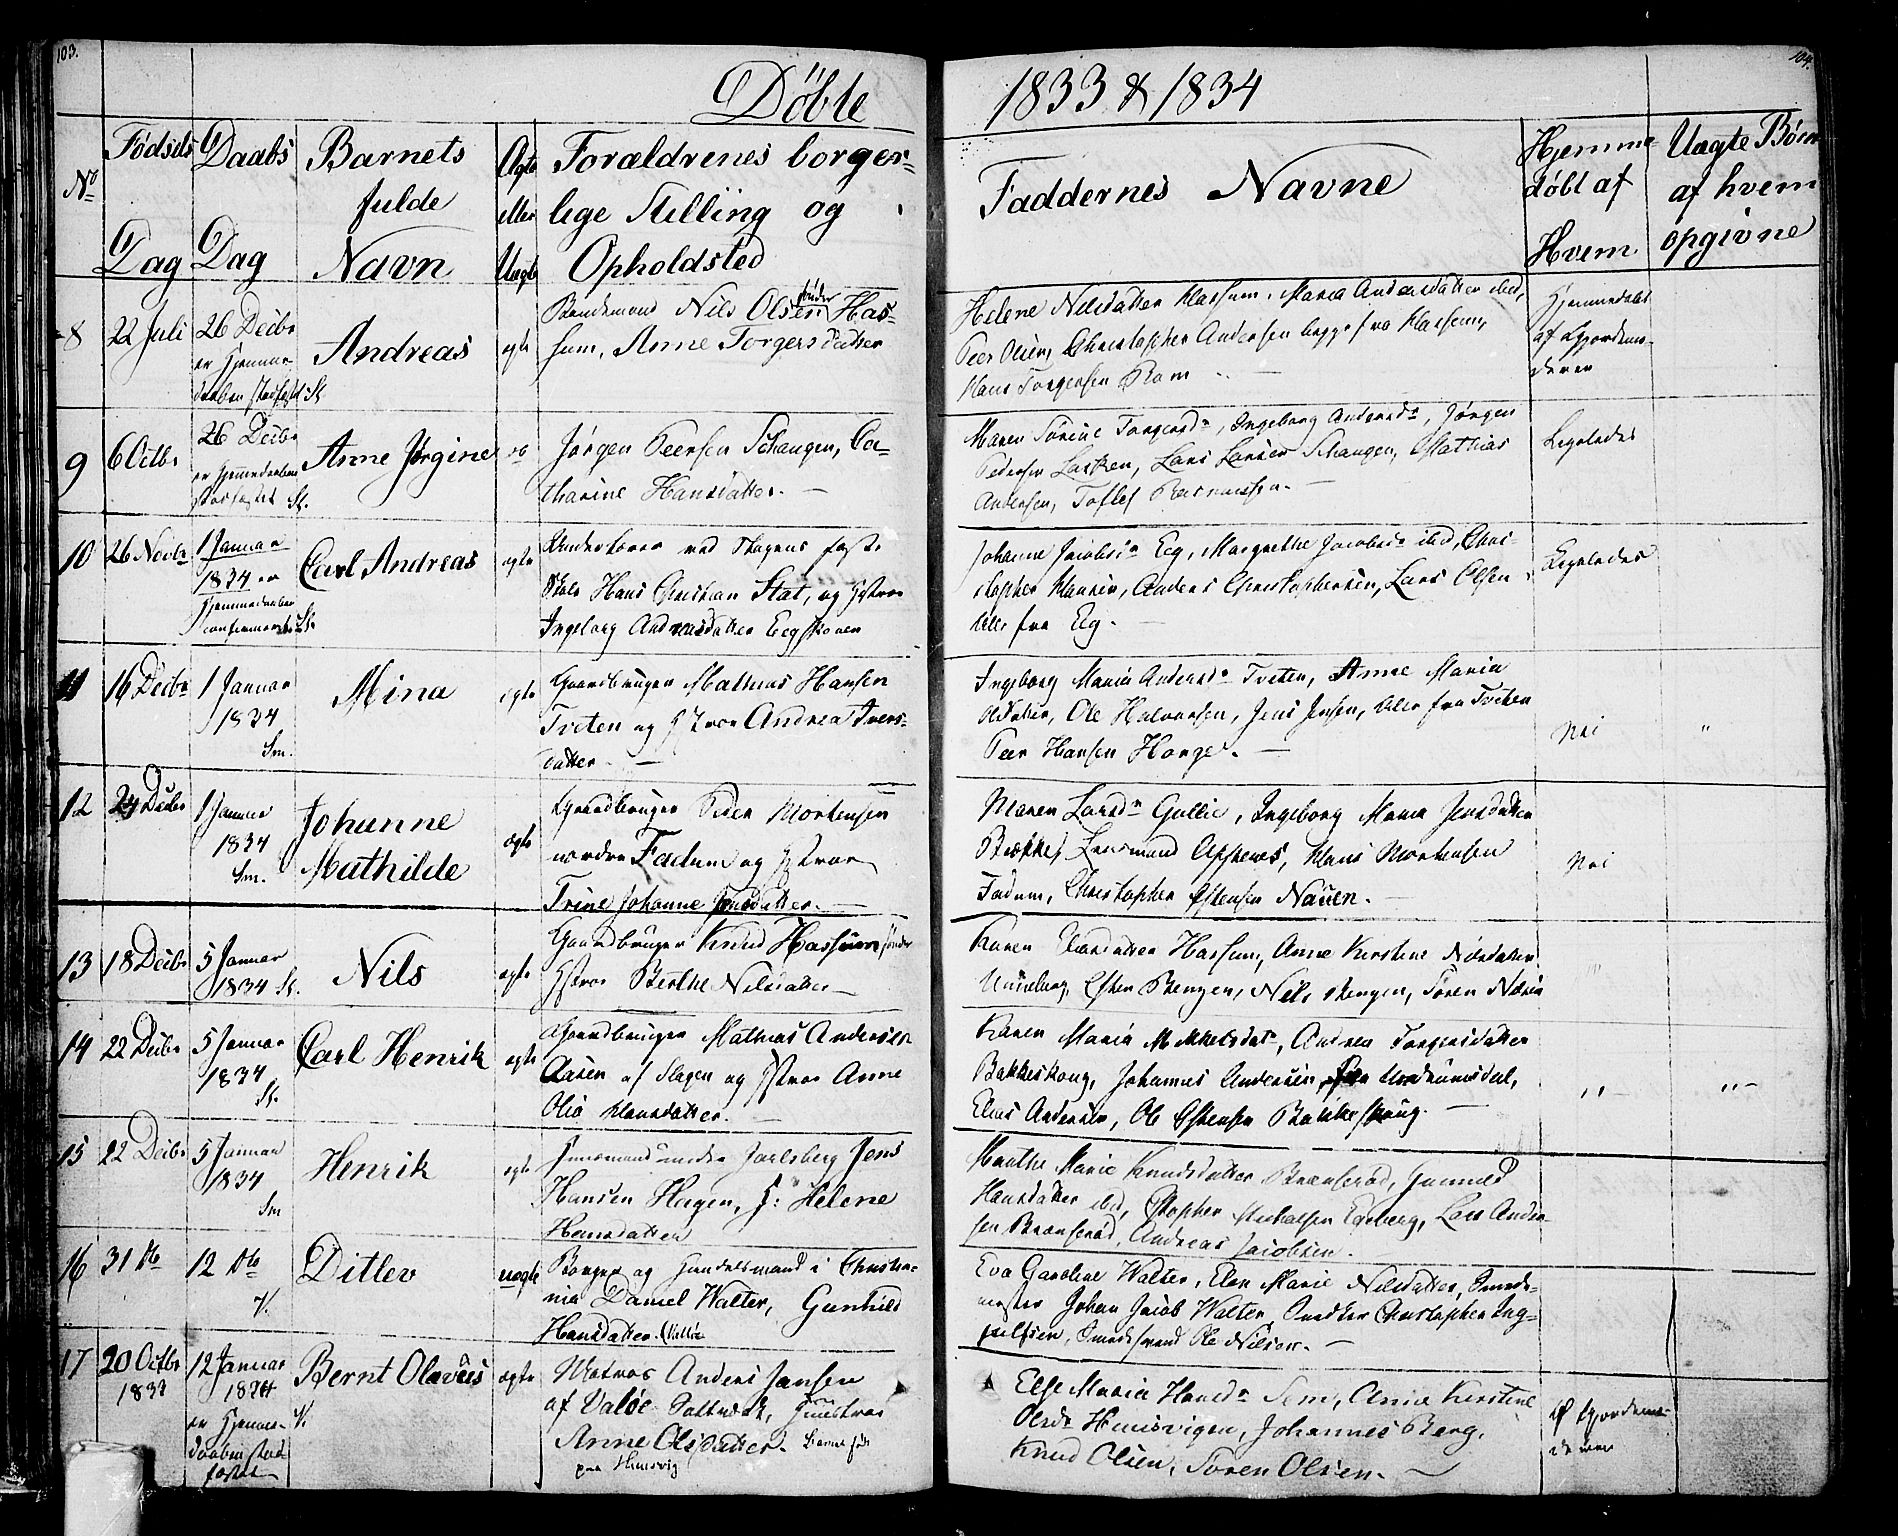 103.
104.
Döbte
1833 & 1834
No
Fødsels Dag
Daabs Dag
Barnets fulde Navn
Ægte eller Uægte
Forældrenes borger-
lige Stilling og
Opholdsted
Faddernes Navne
Hjemme
døbt af
Hvem
Uægte Børn
af hvem
opgivne
8
22 Juli
26 Decbr
er Hjemme-
daaben stadfæstet Sl.
Andreas
ægte
Bondemand Nils Olsen søndre Has-
sum, Anne Torgersdatter
Helene Nilsdatter Hassum, Maria Andersdatter ibid,
Peer Olsen, Christopher Andersen begge fra Hassum,
Hans Torgersen Ram
Hjemmedøbt
af Gjordemo-
deren
9
6 Octbr
26 Decbr
er Hjemmedaaben
stadfæstet Sl.
Anne Jørgine
Jørgen Peersen Schaugen, Ca-
tharine Hansdatter.
Maren Torine Torgersdr, Ingeborg Andersdr, Jørgen
Pedersen Lasken, Lars Larsen Schaugen, Mathias
Andersen, Toflef Rasmussen.
Ligeledes
10
26 Novbr
1 Januar
1834 er
Hjemmedaaben
confirmeret Sl.
Carl Andreas
ægte
ved Slagens faste
Skole Hans Christian Stat, og Hstroe
Ingeborg Andreasdatter Eegskoven
Johanne Jacobsdr Eeg, Margrethe Jacobsdr ibid, Chri-
stopher Hansen, Anders Christophersen, Lars Olsen
alle fra Eeg.
Ligeledes
11
16 Decbr
1 Januar
1834
Sm.
Mina
ægte
Gaardbruger Mathias Hansen
Tveten og Hstroe Andrea Ivers-
datter.
Ingeborg Maria Andersdr Tveten, Anne Maria
Olsdatter, Ole Halvorsen, Jens Jensen, alle fra Tveten
Peer Hansen Horge.
Nei
"
12
24 Decbr
1 Januar
1834
Sm.
Johanne
Mathilde
ægte
Gaardbruger Peder Mortensen
nordre Fadum og Hstroe
Trine Johanne Jensdatter.
Maren Larsdr Gullie, Ingeborg Maria Jensdatter
Bekke, Lensmand Asseses, Hans Mortensen
Fadum, Christopher Estensen Nauen.
Nei
13
18 Decbr
5 Januar
1834 Sl.
Nils
ægte
Gaardbruger Knud Hassum søndre
Hstroe Berthe Nilsdatter
Karen Hassum, Anne Kirstine Nilsdatter
Unneberg, Esten Bengen, Nils Bengen, Søren
"
14
22 Decbr
5 Januar
1834
Sl.
Carl Henrik
ægte
Gaardbruger Mathias Andersen
Aasen af Slagen og Hstroe Anne
Olea Hansdatter.
Karen Maria Mikkelsdatr, Andrea Torgersdatter
Bakkeskoug, Johannes Andersen, fra
Elias Andersen, Ole Estensen Bakkeskoug.
"
"
15
22 Decbr
5 Januar
1834
Sm
Henrik
ægte
Huusmand under Jarlsberg Jens
Hansen Hagen, H: Helene
Hansdatter
Marthe Marie Knudsdatter Brænserød, Gunnild
Hansdatter ibid, Christopher Michelsen Exeberg, Lars Ander-
sen Brænserød, Andreas Jacobsen.
16
31 do
12 do
V.
Ditlev
uægte
Borger og Handelsmand i Christia-
nia Daniel Walter, Gunhild
Hansdatter Valløe
Eva Caroline Walter, Elen Marie Nilsdatter, Smede-
mester Johan Jacob Walter, Snedker Christopher Ing-
vilsen, Smedesvend Ole Nilsen.
17
20 Octbr
1833
12 Januar
1834
er Hjemme-
daaben stad-
fæstet
V.
Bernt Olavüs
ægte
Matros Anders Jansen
af Valøe Saltværk, Hustroe
Anne Olsdatter. Barnet født
paa Huusvig
Else Maria Hansdr Sem, Anne Kirstine
Olsdr Huusvigen, Johannes Berg,
Knud Olsen, Søren Olsen.
af Gjordemo-
deren